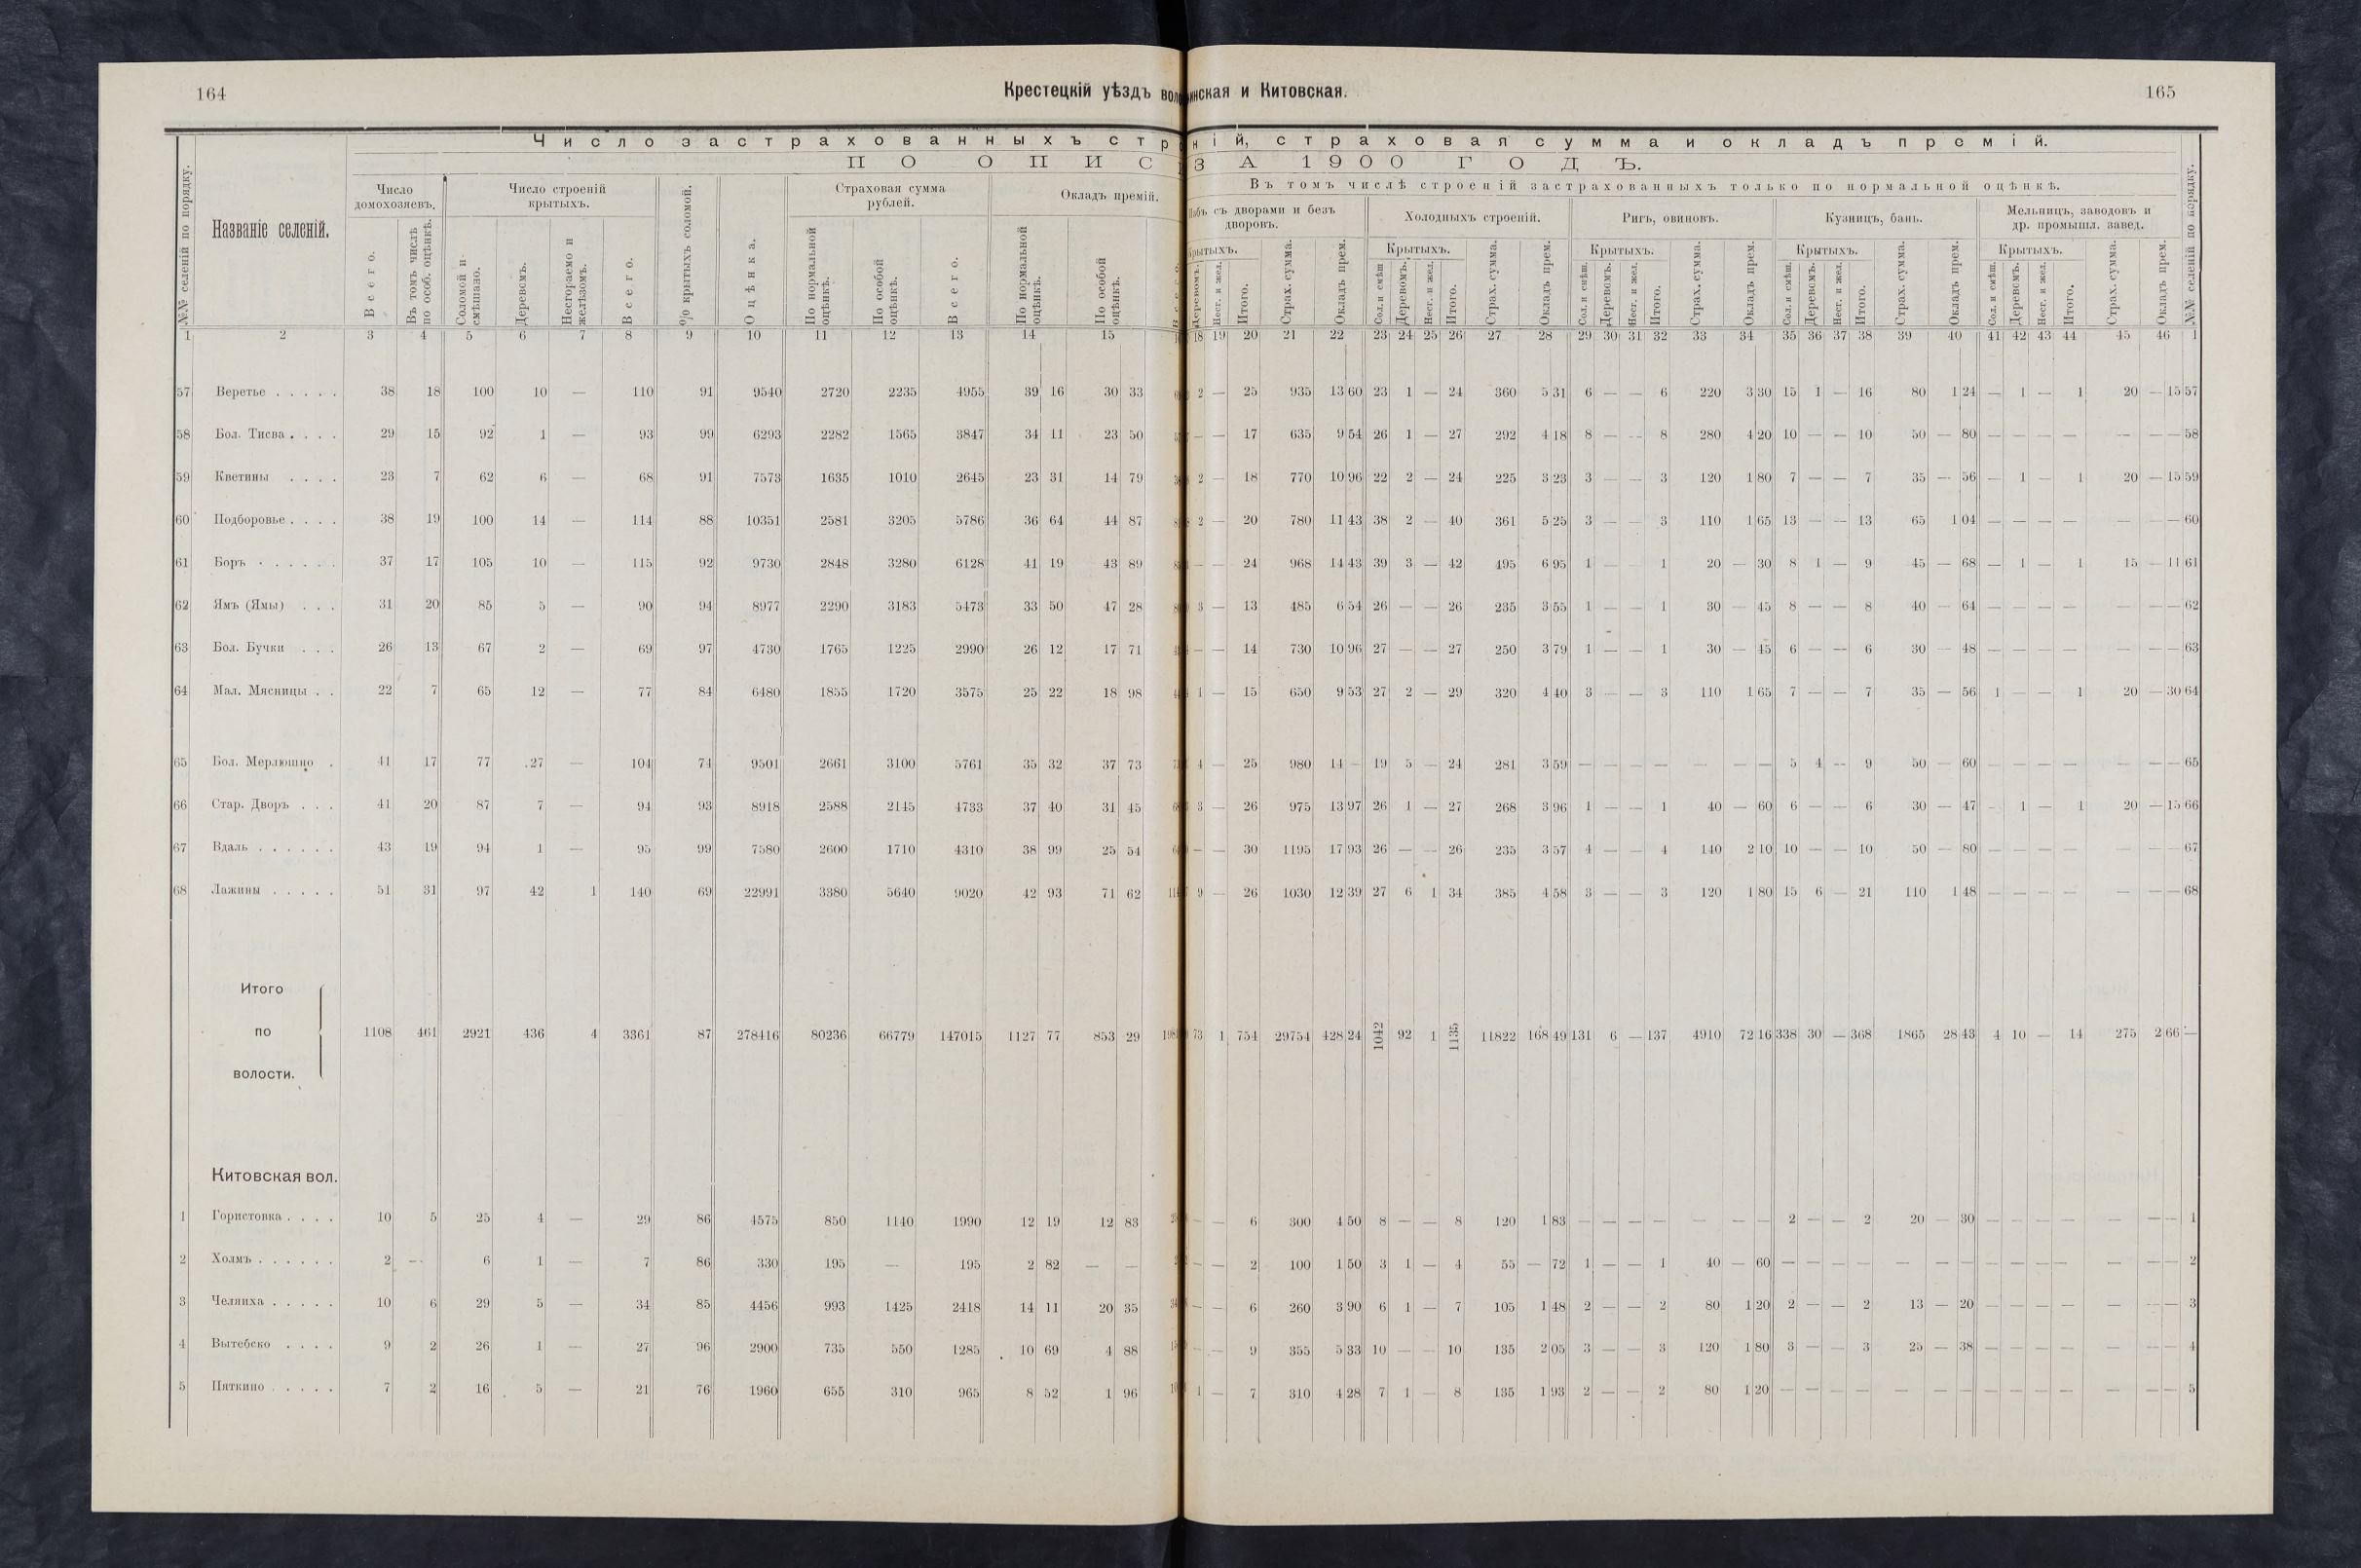 164
Крестецкій уѣздъ
инская и Китовская.
165
Число застрахованныхъ
ній, страховая сумма и окладъ премій.
ПО ОПИС
ЗА 1900 ГОДЪ.
№№ селеній по порядку.
Названіе селеній.
Число домохозяевъ.
Число строеній крытыхъ.
% крытыхъ соломой.
Оцѣнка.
Страховая сумма рублей.
Окладъ премій.
Въ томъ числѣ строеній застрахованныхъ только по нормальной оцѣнкѣ.
съ дворами и безъ дворовъ.
Холодныхъ строеній.
Ригъ, овиновъ.
Кузницъ, бань.
Мельницъ, заводовъ и др. промышл. завед.
№№ селеній по порядку.
Всего.
Въ томъ числѣ по особ. оцѣнкѣ.
Соломой и смѣшано.
Деревомъ.
Несгораемо и желѣзомъ.
Всего.
По нормальной оцѣнкѣ.
По особой оцѣнкѣ.
Всего.
По нормальной оцѣнкѣ.
По особой оцѣнкѣ.
Крытыхъ.
Деревомъ.
Несг. и жел.
Итого.
Страх. сумма.
Окладъ прем.
Крытыхъ.
Сол. и смѣш.
Деревомъ.
Несг. и жел.
Итого.
Страх. сумма.
Окладъ прем.
Крытыхъ.
Сол. и смѣш.
Деревомъ.
Несг. и жел.
Итого.
Страх. сумма.
Окладъ прем.
Крытыхъ.
Сол. и смѣш.
Деревомъ.
Несг. и жел.
Итого.
Страх. сумма.
Окладъ прем.
Крытыхъ.
Сол. и смѣш.
Деревомъ.
Несг. и жел.
Итого.
Страх. сумма.
Окладъ прем.
1 2 3 4 5 6 7 8 9 10 11 12 13 14 15 18 19 20 21 22 23 24 25 26 27 28 29 30 31 32 33 34 35 36 37 38 39 40 41 42 43 44 45 46 1
57 Веретье . . . . . 38 18 100 10 — 110 91 9540 2720 2235 4955 39 16 30 33 2 — 25 935 13 60 23 1 — 24 360 5 31 6 — — 6 220 3 30 15 1 — 16 80 1 24 — 1 — 1 20 — 15 57
58 Бол. Тисва . . . . 29 15 92 1 — 93 99 6293 2282 1565 3847 34 11 23 50 — — 17 635 9 54 26 1 — 27 292 4 18 8 — — 8 280 4 20 10 — — 10 50 — 80 — — — — — — — 58
59 Кветины . . . . 23 7 62 6 — 68 91 7573 1635 1010 2645 23 31 14 79 2 — 18 770 10 96 22 2 — 24 225 3 23 3 — — 3 120 1 80 7 — — 7 35 — 56 — 1 — 1 20 — 15 59
60 Подборовье . . . . 38 19 100 14 — 114 88 10351 2581 3205 5786 36 64 44 87 2 — 20 780 11 43 38 2 — 40 361 5 25 3 — — 3 110 1 65 13 — — 13 65 1 04 — — — — — — — 60
61 Боръ . . . . . . 37 17 105 10 — 115 92 9730 2848 3280 6128 41 19 43 89 — — 24 968 14 43 39 3 — 42 495 6 95 1 — 1 20 — 30 8 1 — 9 45 — 68 — 1 — 1 15 — 11 61
62 Ямъ (Ямы) . . . 31 20 85 5 — 90 94 8977 2290 3183 5473 33 50 47 28 3 — 13 485 6 54 26 — — 26 235 3 55 1 — — 1 30 — 45 8 — — 8 40 — 64 — — — — — — — 62
63 Бол. Бучки . . . 26 13 67 2 — 69 97 4730 1765 1225 2990 26 12 17 71 — — 14 730 10 96 27 — — 27 250 3 79 1 — — 1 30 — 45 6 — — 6 30 — 48 — — — — — — — 63
64 Мал. Мясницы . . 22 7 65 12 — 77 84 6480 1855 1720 3575 25 22 18 98 1 — 15 650 9 53 27 2 — 29 320 4 40 3 — — 3 110 1 65 7 — — 7 35 — 56 1 — — 1 20 — 30 64
65 Бол. Мерлюшно . 41 17 77 27 — 104 74 9501 2661 3100 5761 35 32 37 73 4 — 25 980 14 — 19 5 — 24 281 3 59 — — — — — — — 5 4 — 9 50 — 60 — — — — — — — 65
66 Стар. Дворъ . . . 41 20 87 7 — 94 93 8918 2588 2145 4733 37 40 31 45 3 — 26 975 13 97 26 1 — 27 268 3 96 1 — — 1 40 — 60 6 — — 6 30 — 47 1 — 1 20 — 15 66
67 Вдаль . . . . . . 43 19 94 1 — 95 99 7580 2600 1710 4310 38 99 25 54 — — 30 1195 17 93 26 — — 26 235 3 57 4 — — 4 140 2 10 10 — — 10 50 — 80 — — — — — — — 67
68 Лажины . . . . . 51 31 97 42 1 140 69 22991 3380 5640 9020 42 93 71 62 9 — 26 1030 12 39 27 6 1 34 385 4 58 3 — — 3 120 1 80 15 6 — 21 110 1 48 — — — — — — — 68
Итого
по
волости.
1108 461 2921 436 4 3361 87 278416 80236 66779 147015 1127 77 853 29 73 1 754 29754 428 24 1042 92 1 1135 11822 168 49 131 6 — 137 4910 72 16 338 30 — 368 1865 28 43 4 10 — 14 275 2 66 —
Китовская вол.
1 Гористовка . . . . 10 5 25 4 — 29 86 4575 850 1140 1990 12 19 12 83 — — 6 300 4 50 8 — — 8 120 1 83 — — — — — — — 2 — — 2 20 — 30 — — — — — — — 1
2 Холмъ . . . . . . 2 — 6 1 — 7 86 330 195 — 195 2 82 — — — — 2 100 1 50 3 1 — 4 55 — 72 1 — — 1 40 — 60 — — — — — — — — — — — — — — 2
3 Челяиха . . . . . 10 6 29 5 — 34 85 4456 993 1425 2418 14 11 20 35 — — 6 260 3 90 6 1 — 7 105 1 48 2 — — 2 80 1 20 2 — — 2 13 — 20 — — — — — — — 3
4 Вытебско . . . . 9 2 26 1 — 27 96 2900 735 550 1285 10 69 4 88 — — 9 355 5 33 10 — — 10 135 2 05 3 — — 3 120 1 80 3 — — 3 25 — 38 — — — — — — — 4
5 Пяткино . . . . . 7 2 16 5 — 21 76 1960 655 310 965 8 52 1 96 1 — 7 310 4 28 7 1 — 8 135 1 93 2 — — 2 80 1 20 — — — — — — — — — — — — — — 5